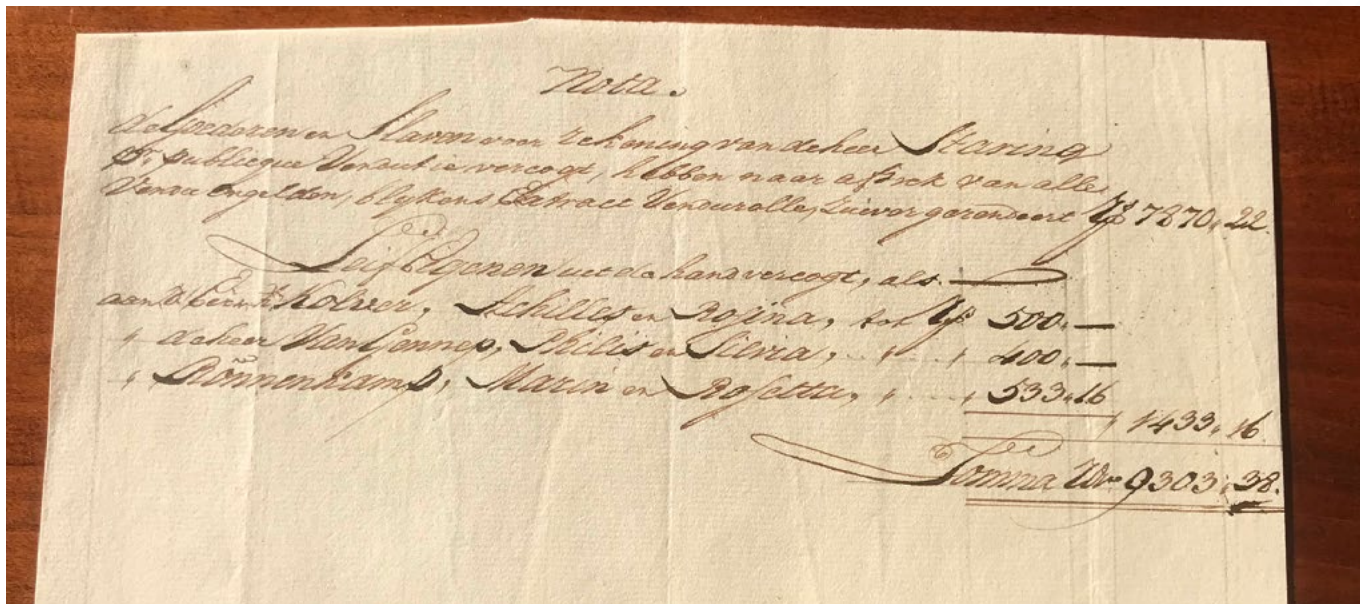 Nota.
de Goederen en Slaven voor rekening van de heer Staring
pr. publicque Vendutie vercogt, hebben naar aftrek van alle
Vendu ongelden, blykens Extract Vendurolle, zuiver gerendeert Rds 7870,, 22.
Leif Eigenen uit de hand vercogt, als.
aan d'Eerw. Kolver, Achilles en Rosina, tot Rds 500,, —
" de heer Van Gennep, Philis en Silvia, " " 400,, —
" Rönnenkamp, Marin en Rosetta, " " 533,, 16
" 1433,, 16
Somma Rds 9303,, 38.